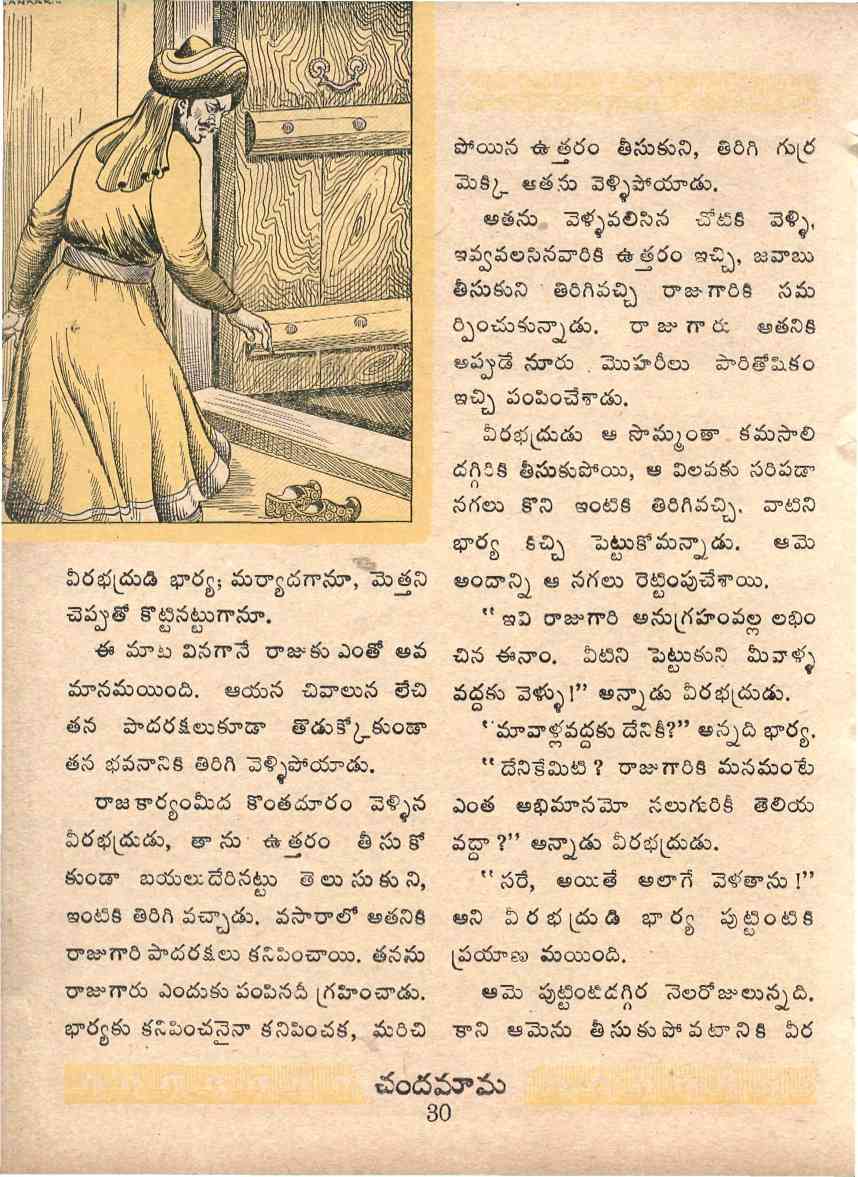 వీరభద్రుడి భార్య; మర్యాదగానూ, మెత్తని
చెప్పుతో కొట్టినట్టుగానూ.
ఈ మాట వినగానే రాజుకు ఎంతో అవ
మానమయింది. ఆయన చివాలున లేచి
తన పాదరక్షలుకూడా తొడుక్కోకుండా
తన భవనానికి తిరిగి వెళ్ళిపోయాడు.
రాజకార్యంమీద కొంతదూరం వెళ్ళిన
వీరభద్రుడు, తాను ఉత్తరం తీసుకో
కుండా బయలుదేరినట్టు తెలుసుకుని,
ఇంటికి తిరిగి వచ్చాడు. వసారాలో అతనికి
రాజుగారి పాదరక్షలు కనిపించాయి. తనను
రాజుగారు ఎందుకు పంపినదీ గ్రహించాడు.
భార్యకు కనిపించనైనా కనిపించక, మరిచి
పోయిన ఉత్తరం తీసుకుని, తిరిగి గుర్ర
మెక్కి అతను వెళ్ళిపోయాడు.
అతను వెళ్ళవలిసిన చోటికి వెళ్ళి,
ఇవ్వవలసినవారికి ఉత్తరం ఇచ్చి, జవాబు
తీసుకుని తిరిగివచ్చి రాజుగారికి సమ
ర్పించుకున్నాడు. రాజుగారు అతనికి
అప్పుడే నూరు మొహరీలు పారితోషికం
ఇచ్చి పంపించేశాడు.
వీరభద్రుడు ఆ సొమ్మంతా కమసాలి
దగ్గిరికి తీసుకుపోయి, ఆ విలవకు సరిపడా
నగలు కొని ఇంటికి తిరిగివచ్చి, వాటిని
భార్య కిచ్చి పెట్టుకోమన్నాడు. ఆమె
అందాన్ని ఆ నగలు రెట్టింపుచేశాయి.
"ఇవి రాజుగారి అనుగ్రహంవల్ల లభిం
చిన ఈనాం. వీటిని పెట్టుకుని మీవాళ్ళ
వద్దకు వెళ్ళు!" అన్నాడు వీరభద్రుడు.
"మావాళ్లవద్దకు దేనికీ?" అన్నది భార్య.
"దేనికేమిటి? రాజుగారికి మనమంటే
ఎంత అభిమానమో నలుగురికీ తెలియ
వద్దా?" అన్నాడు వీరభద్రుడు.
"సరే, అయితే అలాగే వెళతాను!"
అని వీరభద్రుడి భార్య పుట్టింటికి
ప్రయాణమయింది.
ఆమె పుట్టింటిదగ్గిర నెలరోజులున్నది.
కాని ఆమెను తీసుకుపోవటానికి వీర
చందమామ
30